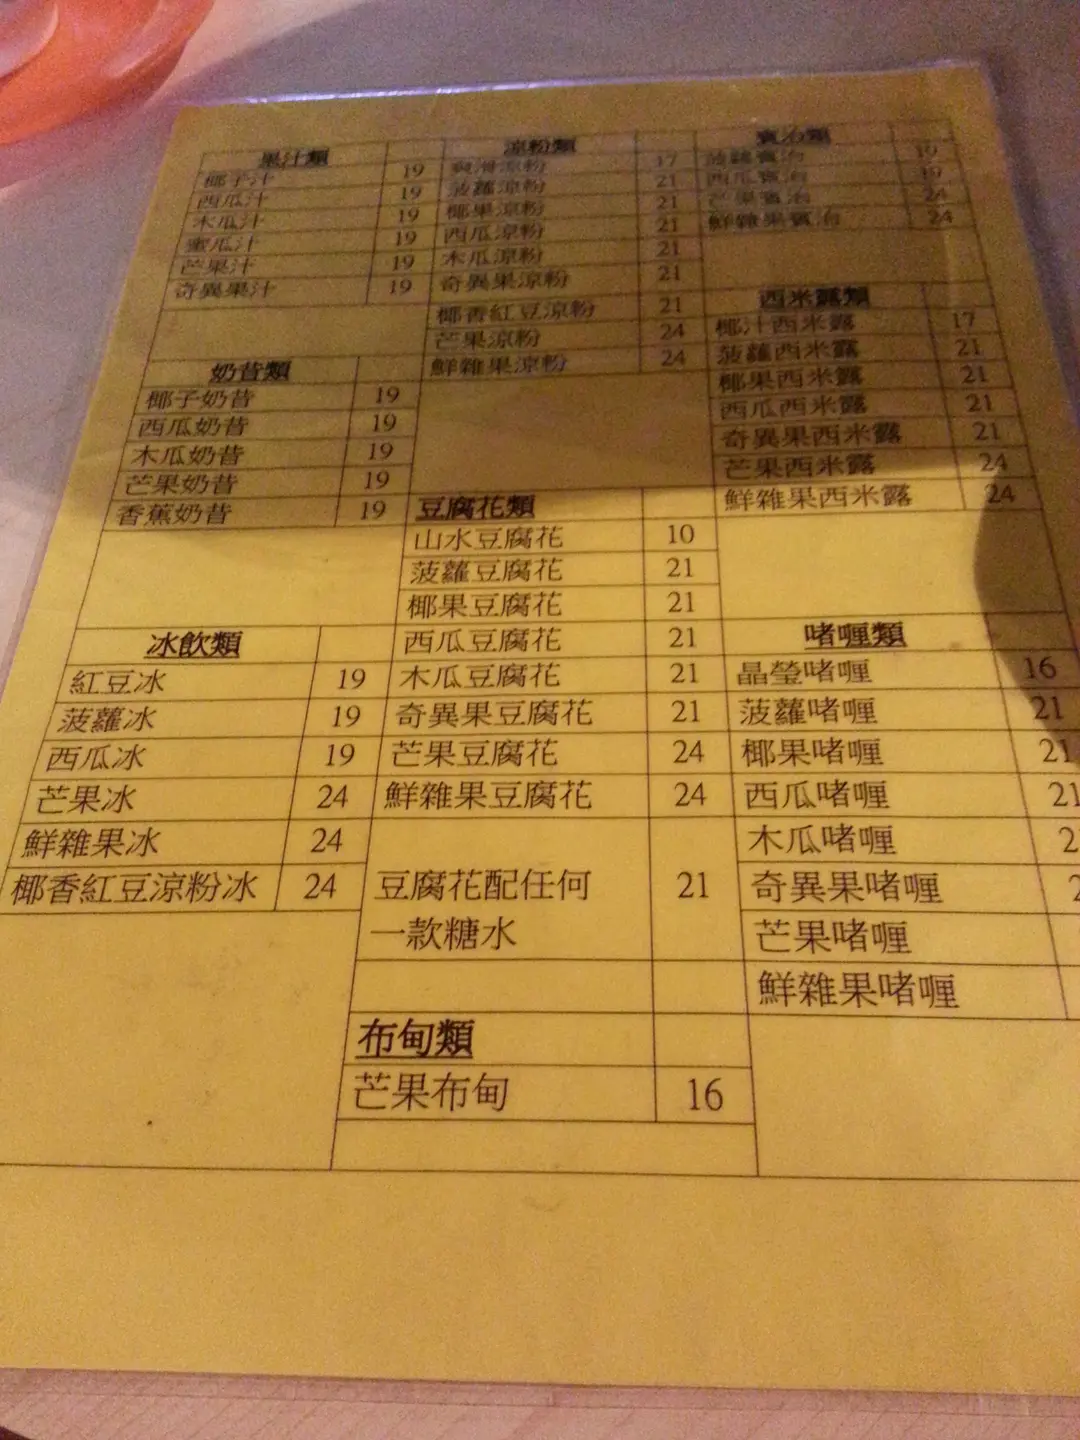 果汁類
椰子汁 19
西瓜汁 19
木瓜汁 19
蜜瓜汁 19
芒果汁 19
奇異果汁 19
奶昔類
椰子奶昔 19
西瓜奶昔 19
木瓜奶昔 19
芒果奶昔 19
香蕉奶昔 19
冰飲類
紅豆冰 19
菠蘿冰 19
西瓜冰 19
芒果冰 24
鮮雜果冰 24
椰香紅豆涼粉冰 24
涼粉類
爽滑涼粉 17
菠蘿涼粉 21
椰果涼粉 21
西瓜涼粉 21
木瓜涼粉 21
奇異果涼粉 21
椰香紅豆涼粉 21
芒果涼粉 24
鮮雜果涼粉 24
豆腐花類
山水豆腐花 10
菠蘿豆腐花 21
椰果豆腐花 21
西瓜豆腐花 21
木瓜豆腐花 21
奇異果豆腐花 21
芒果豆腐花 24
鮮雜果豆腐花 24
豆腐花配任何 21
一款糖水
布甸類
芒果布甸 16
賓治類
菠蘿賓治 19
西瓜賓治 19
芒果賓治 24
鮮雜果賓治 24
西米露類
椰汁西米露 17
菠蘿西米露 21
椰果西米露 21
西瓜西米露 21
奇異果西米露 21
芒果西米露 24
鮮雜果西米露 24
啫喱類
晶瑩啫喱 16
菠蘿啫喱 21
椰果啫喱 21
西瓜啫喱 21
木瓜啫喱 2
奇異果啫喱 2
芒果啫喱
鮮雜果啫喱